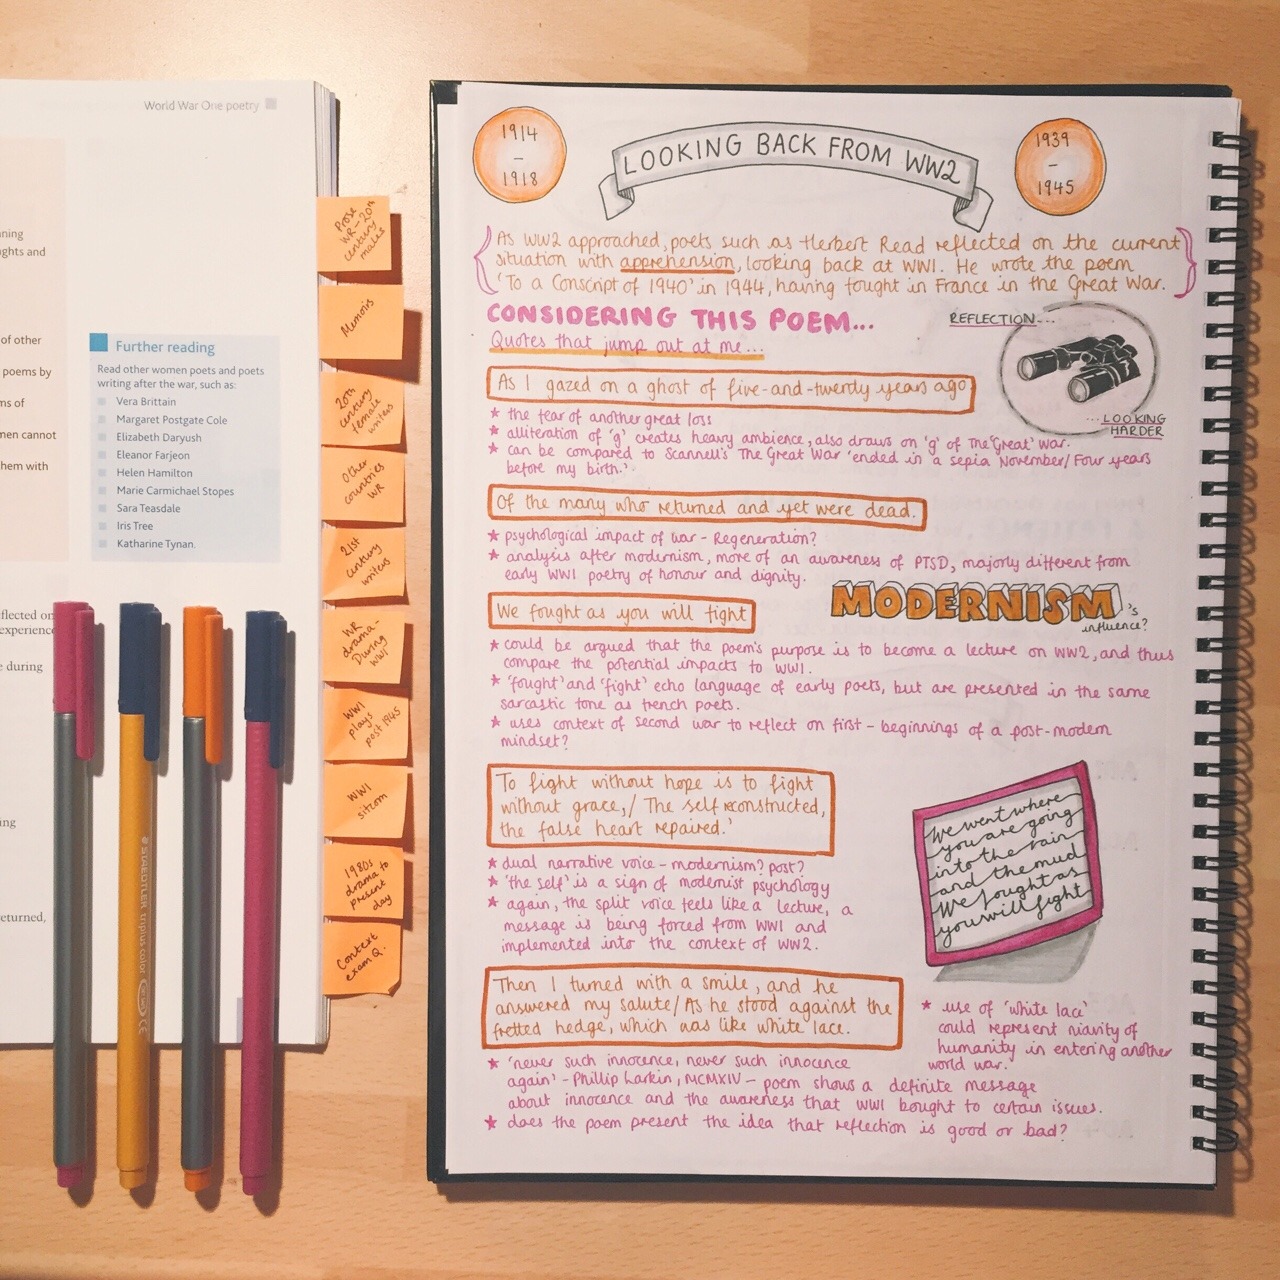 World War One poetry
ning
ghts and
of other
poems by
ms of
men cannot
hem with
Further reading
Read other women poets and poets
writing after the war, such as:
Vera Brittain
Margaret Postgate Cole
Elizabeth Daryush
Eleanor Farjeon
Helen Hamilton
Marie Carmichael Stopes
Sara Teasdale
Iris Tree
Katharine Tynan.
flected on
experience
e during
ing
eturned,
STAEDTLER triplus color
Prose
WR-20th
century
males
Memoirs
20th
century
female
writers
Other
countries
WR
21st
century
writers
WR
drama-
During
WW1
WW1
plays
post 1945
WW1
sitcom
1980s
drama to
present
day
Context
exam Q.
1914
-
1918
LOOKING BACK FROM WW2
1939
-
1945
As WW2 approached, poets such as Herbert Read reflected on the current
situation with apprehension, looking back at WW1. He wrote the poem
'To a Conscript of 1940' in 1944, having fought in France in the Great War.
CONSIDERING THIS POEM...
Quotes that jump out at me...
REFLECTION...
...LOOKING
HARDER
As I gazed on a ghost of five-and-twenty years ago
* the fear of another great loss
* alliteration of 'g' creates heavy ambience, also draws on 'g' of The 'Great' War.
* can be compared to Scannell's The Great War 'ended in a sepia November/Four years
before my birth.'
Of the many who returned and yet were dead.
* psychological impact of war - Regeneration?
* analysis after modernism, more of an awareness of PTSD, majorly different from
early WW1 poetry of honour and dignity.
MODERNISM's
influence?
We fought as you will fight
* could be argued that the poem's purpose is to become a lecture on WW2, and thus
compare the potential impacts to WW1.
* 'fought' and 'fight' echo language of early poets, but are presented in the same
sarcastic tone as trench poets.
* uses context of second war to reflect on first - beginnings of a post-modern
mindset?
To fight without hope is to fight
without grace,/ The self reconstructed,
the false heart repaired.'
* dual narrative voice - modernism? post?
* 'the self' is a sign of modernist psychology
* again, the split voice feels like a lecture, a
message is being forced from WW1 and
implemented into the context of WW2.
We went where
you are going
into the rain
and the mud
We fought as
you will fight
Then I turned with a smile, and he
answered my salute/As he stood against the
fretted hedge, which was like white lace.
* use of 'white lace'
could represent niavity of
humanity in entering another
world war.
* 'never such innocence, never such innocence
again' - Phillip Larkin, MCMXIV - poem shows a definite message
about innocence and the awareness that WW1 bought to certain issues.
* does the poem present the idea that reflection is good or bad?